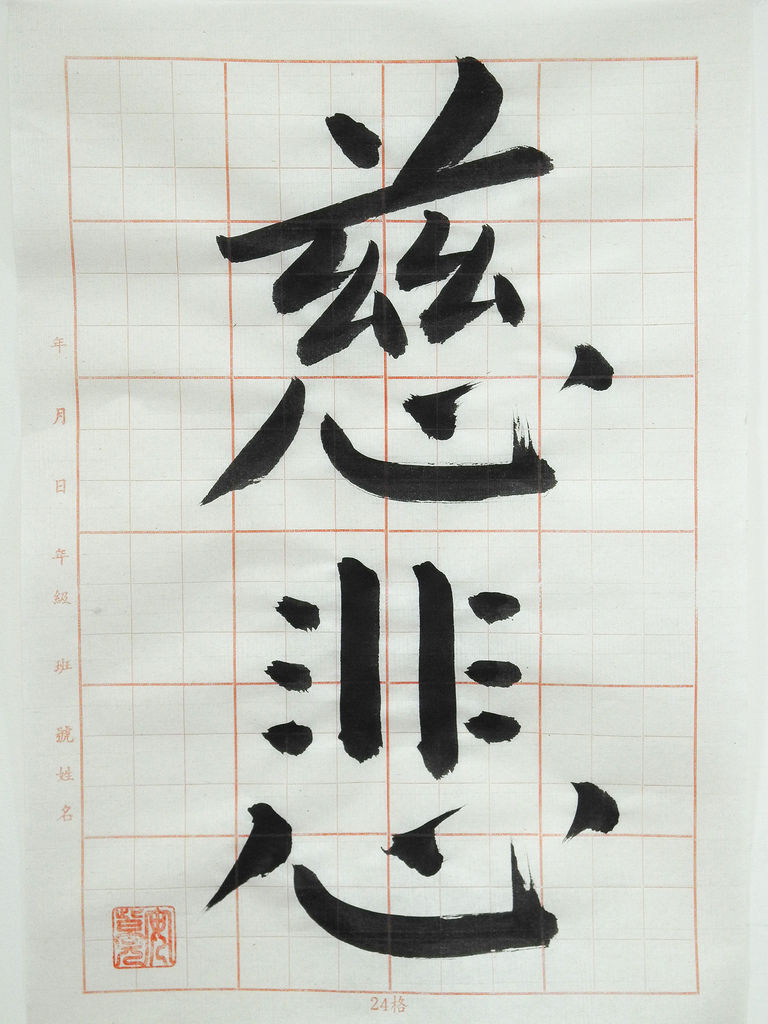 慈悲
年 月 日 年級 班 號 姓名
24格